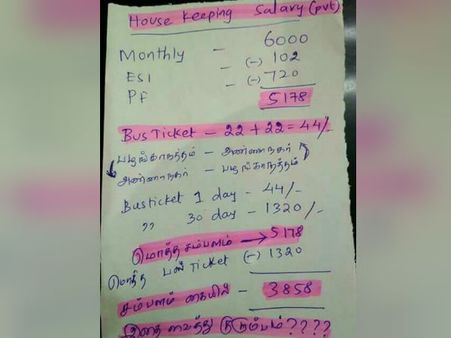 House keeping Salary (pvt)
Monthly - 6000
ESI - (-) 102
PF - (-) 720
5178
Bus Ticket - 22 + 22 = 44/-
பழங்காநத்தம் - அண்ணாநகர்
அண்ணாநகர் - பழங்காநத்தம்
Bus ticket 1 day - 44/-
" 30 day - 1320/-
மொத்த சம்பளம் → 5178
மொத்த பஸ் Ticket (-) 1320
சம்பளம் கையில் - 3858
இதை வைத்து குடும்பம்????